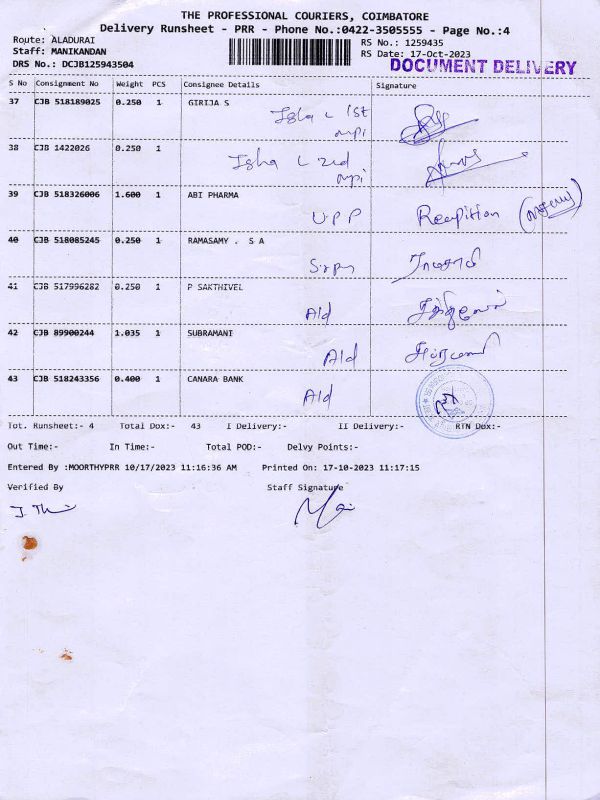 THE PROFESSIONAL COURIERS, COIMBATORE
Delivery Runsheet - PRR - Phone No.:0422-3505555 - Page No.:4
Route: ALADURAI RS No.: 1259435
Staff: MANIKANDAN RS Date: 17-Oct-2023
DRS No.: DCJB125943504 DOCUMENT DELIVERY
S No Consignment No Weight PCS Consignee Details Signature
37 CJB 518189025 0.250 1 GIRIJA S
Isha L 1st
mpi
38 CJB 1422026 0.250 1
Isha L 2nd
mpi
39 CJB 518326006 1.600 1 ABI PHARMA
UPP Reception
40 CJB 518085245 0.250 1 RAMASAMY . S A
ராமசாமி
41 CJB 517996282 0.250 1 P SAKTHIVEL
Ald சக்திவேல்
42 CJB 89900244 1.035 1 SUBRAMANI
Ald சுப்ரமணி
43 CJB 518243356 0.400 1 CANARA BANK
Ald
Tot. Runsheet:- 4 Total Dox:- 43 I Delivery:- II Delivery:- RTN Dox:-
Out Time:- In Time:- Total POD:- Delvy Points:-
Entered By :MOORTHYPRR 10/17/2023 11:16:36 AM Printed On: 17-10-2023 11:17:15
Verified By Staff Signature